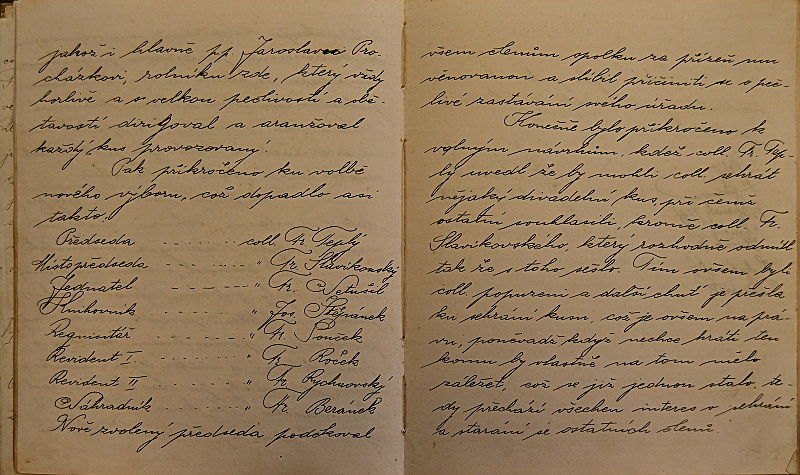 jakož i hlavně pp. Jaroslavu Pro-
cházkovi, rolníku zde, který vždy
horlivě a s velkou pečlivostí a obě-
tavostí dirigoval a aranžoval
každý kus provozovaný.
Pak přikročeno ku volbě
nového výboru, což dopadlo asi
takto:
Předseda - - - - - - coll. Fr. Teplý
Místopředseda - - - - " Fr. Slavíkovský
Jednatel - - - - " Fr.
Knihovník - - - - " Jos. Štěpánek
Registář - - - - " Fr. Souček
Revident I - - - - " Fr. Roček
Revident II - - - - " Fr. Rychnovský
Náhradník - - - - " Fr. Beránek
Nově zvolený předseda poděkoval
všem členům spolku za přízeň mu
věnovanou a slíbil přičiniti se o peč-
livé zastávání svého úřadu.
Konečně bylo přikročeno k
volným návrhům, kdež coll. Fr. Tep-
lý uvedl že by mohli coll. sehrát
nějaký divadelní kus, při čemž
ostatní souhlasili, kromě coll. Fr.
Slavíkovského, který rozhodně odmítl
tak že s toho sešlo. Tím ovšem byli
coll. popuzeni a další chuť je přešla
ku sehrání kusu, což je ovšem na prá-
vu, poněvadž když nechce hráti ten
komu by vlastně na tom mělo
záležet, což se již jednou stalo, te-
dy přechází všechen interes o sehrání
a starání se ostatních členů